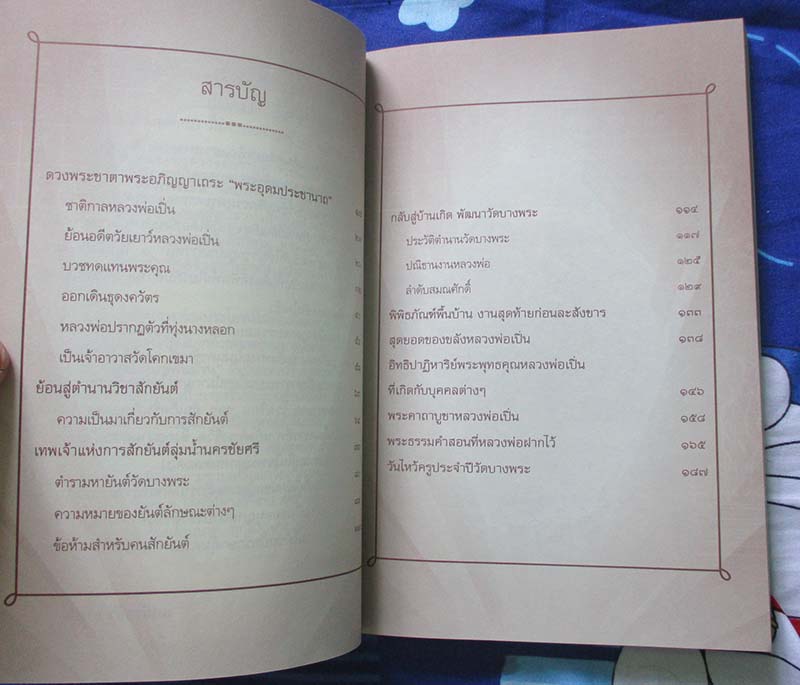 สารบัญ
ดวงพระชาตาพระอภิญญาเถระ "พระอุดมประชานาถ"
ชาติกาลหลวงพ่อเปิ่น
ย้อนอดีตวัยเยาว์หลวงพ่อเปิ่น
บวชทดแทนพระคุณ
ออกเดินธุดงควัตร
หลวงพ่อปรากฏตัวที่ทุ่งนางหลอก
เป็นเจ้าอาวาสวัดโคกเขมา
ย้อนสู่ตำนานวิชาสักยันต์
ความเป็นมาเกี่ยวกับการสักยันต์
เทพเจ้าแห่งการสักยันต์ลุ่มน้ำนครชัยศรี
ตำรามหายันต์วัดบางพระ
ความหมายของยันต์ลักษณะต่างๆ
ข้อห้ามสำหรับคนสักยันต์
กลับสู่บ้านเกิด พัฒนาวัดบางพระ ๑๑๔
ประวัติตำนานวัดบางพระ ๑๑๗
ปณิธานงานหลวงพ่อ ๑๒๕
ลำดับสมณศักดิ์ ๑๒๙
พิพิธภัณฑ์พื้นบ้าน งานสุดท้ายก่อนละสังขาร ๑๓๓
สุดยอดของขลังหลวงพ่อเปิ่น ๑๓๘
อิทธิปาฏิหาริย์พระพุทธคุณหลวงพ่อเปิ่น
ที่เกิดกับบุคคลต่างๆ ๑๔๖
พระคาถาบูชาหลวงพ่อเปิ่น ๑๕๘
พระธรรมคำสอนที่หลวงพ่อฝากไว้ ๑๖๕
วันไหว้ครูประจำปีวัดบางพระ ๑๘๗